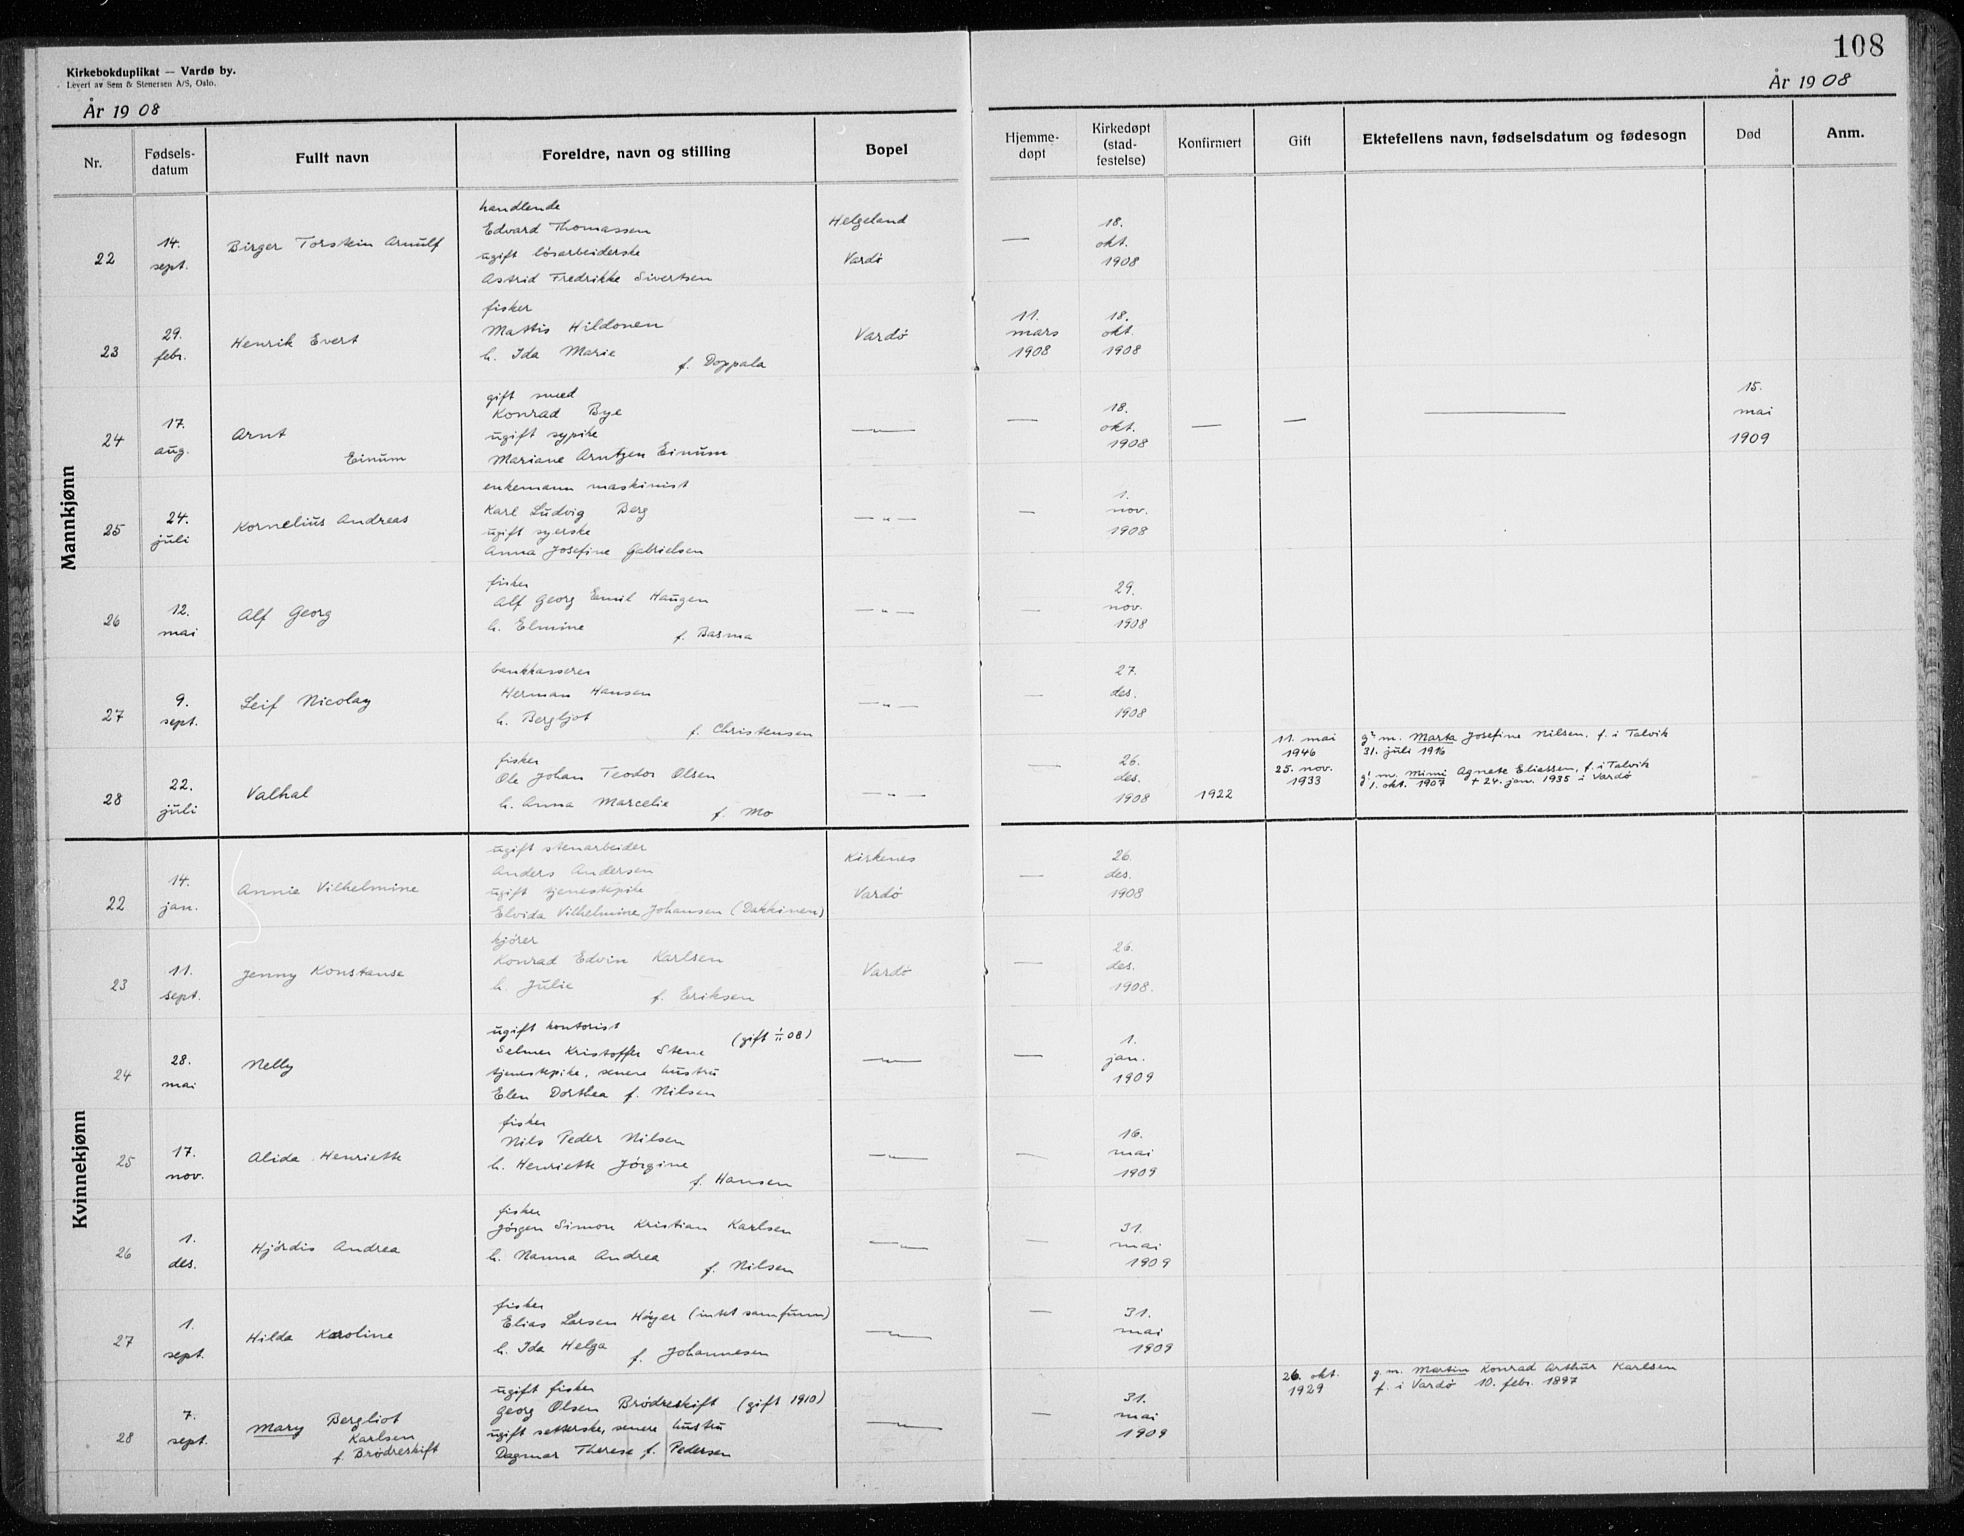 108
Kirkebokduplikat — Vardø by.
Levert av Sem & Stenersen A/S, Oslo.
År 1908
År 1908
Nr.
Fødsels-
datum
Fullt navn
Foreldre, navn og stilling
Bopel
Hjemme-
døpt
Kirkedøpt
(stad-
festelse)
Konfirmert
Gift
Ektefellens navn, fødselsdatum og fødesogn
Død
Anm.
Mannkjønn
22
14.
sept.
Birger Torstein Arnulf
handlende
Edvard Thomassen
ugift løsarbeiderske
Astrid Fredrikke Sivertsen
Helgeland
Vardö
—
18.
okt.
1908
23
29.
febr.
Henrik Evert
fisker
Mattis Hildonen
h. Ida Marie
f. Doppala
Vardø
11.
mars
1908
18.
okt.
1908
24
17.
aug.
Arnt
Einum
gift smed
Konrad Bye
ugift sypike
Mariane Arntzen Einum
— " —
—
18.
okt.
1908
—
—
—
15.
mai
1909
25
24.
juli
Kornelius Andreas
enkemann maskinist
Karl Ludvig Berg
ugift syerske
Anna Josefine Gabrielsen
— " —
—
1.
nov.
1908
26
12.
mai
Alf Georg
fisker
Alf Georg Emil Haugen
h. Elmine
f. Basma
— " —
—
29.
nov.
1908
27
9.
sept.
Leif Nicolay
bankkasserer
Herman Hansen
h. Bergljot
f. Christensen
— " —
—
27.
des.
1908
28
22.
juli
Valhal
fisker
Ole Johan Teodor Olsen
h. Anna Marcelie
f. Mo
— " —
—
26.
des.
1908
1922
11. mai
1946
25. nov.
1933
g² m. Marta Josefine Nilsen, f. i Talvik
31. juli 1916
g¹ m. Mimi Agnete Eliassen, f. i Talvik
1. okt. 1907 + 24. jan. 1935 i Vardø
Kvinnekjønn
22
14.
jan.
Annie Vilhelmine
ugift stenarbeider
Anders Andersen
ugift tjenestepike
Elvida Vilhelmine Johansen (Dakkinen)
Kirkenes
Vardø
—
26.
des.
1908
23
11.
sept.
Jenny Konstanse
kjører
Konrad Edvin Karlsen
h. Julie
f. Eriksen
Vardö
—
26.
des.
1908.
24
28.
mai
Nelly
ugift kontorist
(gift 1/11 08)
Selmer Kristoffer Stene
tjenestepike, senere hustru
Elen Dorthea f. Nilsen
— " —
—
1.
jan.
1909
25
17.
nov.
Alida Henriette
fisker
Nils Peder Nilsen
h. Henriette Jörgine
f. Hansen
— " —
—
16.
mai
1909
26
1.
des.
Hjördis Andrea
fisker
Jörgen Simon Kristian Karlsen
h. Nanna Andrea
f. Nilsen
— " —
—
31.
mai
1909
27
1.
sept.
Hilda Karoline
fisker
Elias Larsen Höyer (intet samfunn)
h. Ida Helga
f. Johannesen
— " —
—
31.
mai
1909
28
7.
sept.
Mary Bergliot
Karlsen
f. Brödreskift
ugift fisker
Georg Olsen Brödreskift (gift 1910)
ugift setterske, senere hustru
Dagmar Therese f. Pedersen
— " —
—
31.
mai
1909
26. okt.
1929
g. m. Martin Konrad Arthur Karlsen
f. i Vardö 10. febr. 1897